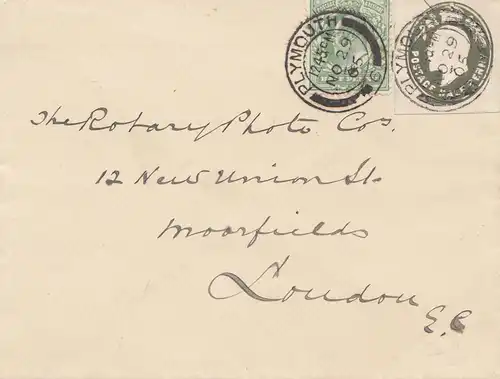 PLYMOUTH
12.45PM
NO 29
05
PLYMO
NO 29
05
POSTAGE
The Rotary Photo Cos.
12 New Union St.
Moorfields
London
E.C